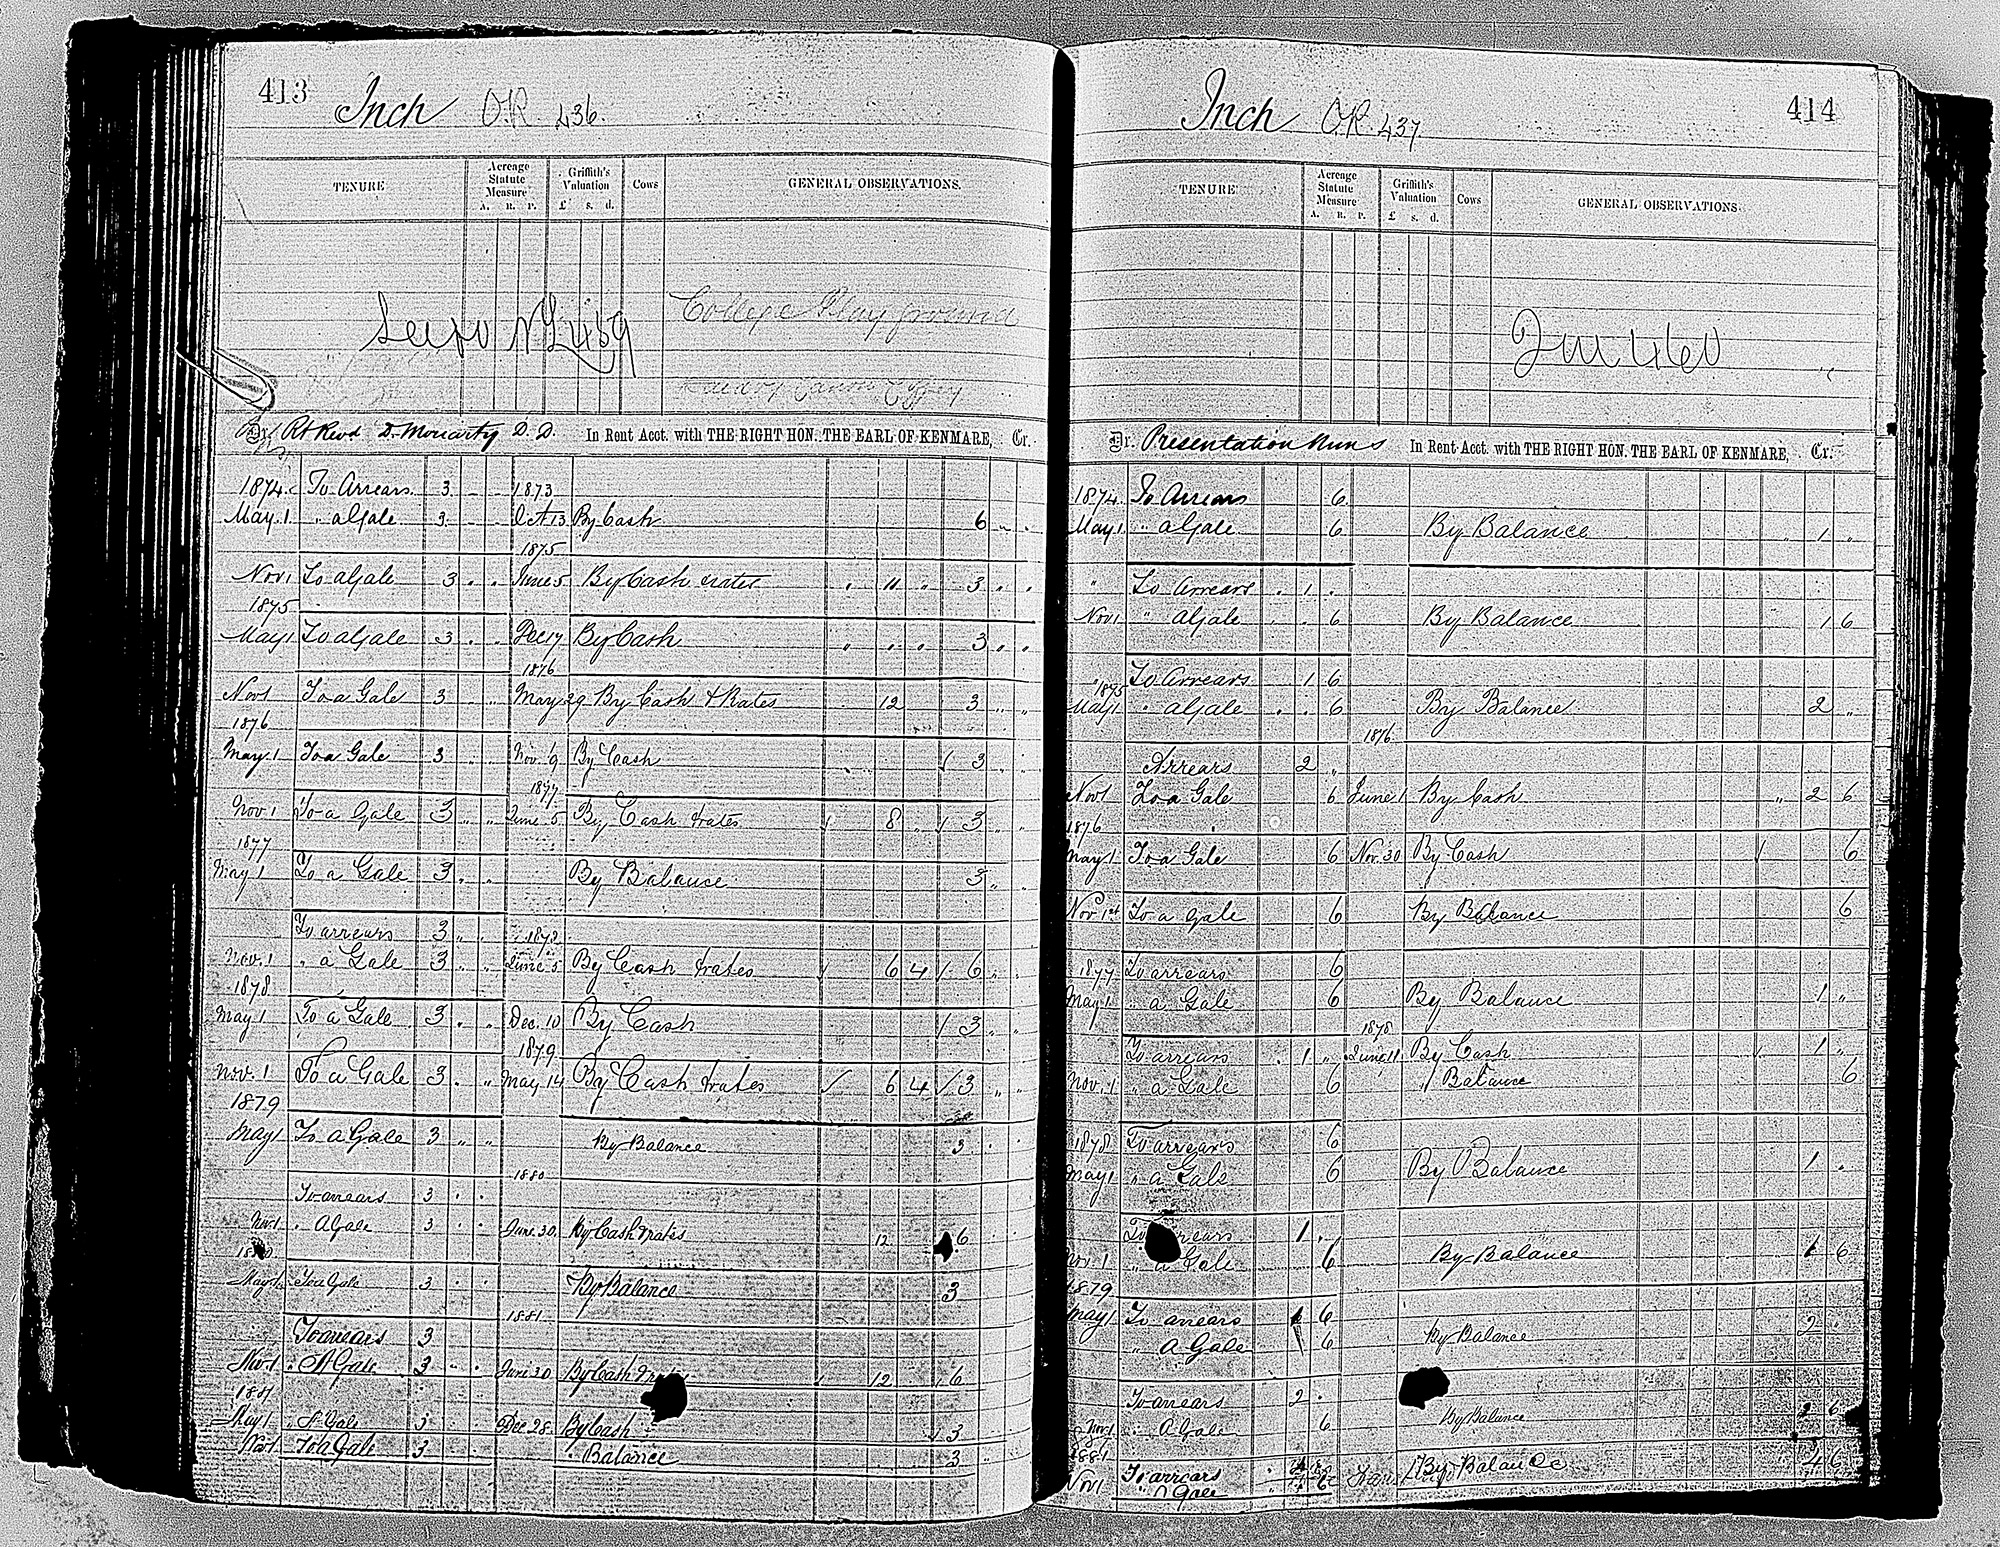 413 Inch O.R. 436.
TENURE Acreage Statute Measure A. R. P. Griffith's Valuation £ s. d. Cows GENERAL OBSERVATIONS.
College Play ground
Dr. Rt Revd D. Moriarty D.D. In Rent Acct. with THE RIGHT HON. THE EARL OF KENMARE, Cr.
1874 To Arrears 3 1873
May 1 " a Gale 3 Oct 13 By Cash 6
1875
Nov 1 To a Gale 3 June 5 By Cash & rates 11 3
1875
May 1 To a Gale 3 Dec 17 By Cash 3
1876
Nov 1 To a Gale 3 May 29 By Cash & Rates 12 3
1876
May 1 To a Gale 3 Nov 9 By Cash 3
1877
Nov. 1 To a Gale 3 June 5 By Cash & rates 8 3
1877
May 1 To a Gale 3 By Balance 3
To arrears 3 1878
Nov. 1 " a Gale 3 June 5 By Cash & rates 6 4 6
1878
May 1 To a Gale 3 Dec. 10 By Cash 3
1879
Nov. 1 To a Gale 3 May 14 By Cash & rates 6 4 3
1879
May 1 To a Gale 3 By Balance 3
1880
To arrears 3
Nov. 1 " A Gale 3 June 30 By Cash & rates 12 6
May 1 To a Gale 3 By Balance 3
1881
To arrears 3
Nov 1 " A Gale 3 June 30 By Cash & 12 6
1881
May 1 " A Gale 3 Dec 28 By Cash 3
Nov 1 To a Gale 3 " Balance 3
Inch O.R. 437 414
TENURE Acreage Statute Measure A. R. P. Griffith's Valuation £ s. d. Cows GENERAL OBSERVATIONS.
Dr. Presentation Nuns In Rent Acct. with THE RIGHT HON. THE EARL OF KENMARE, Cr.
1874 To Arrears 6
May 1 " a Gale 6 By Balance 1 "
" To Arrears 1
Nov 1 " a Gale 6 By Balance 1 6
" To Arrears 1 6
1875
May 1 " a Gale 6 By Balance 2 "
1876
Arrears 2 "
Nov 1 To a Gale 6 June 1 By Cash 2 6
1876
May 1 To a Gale 6 Nov. 30 By Cash 6
Nov 1st To a Gale 6 By Balance 6
1877 To arrears 6
May 1 " a Gale 6 By Balance 1 "
1878
To arrears 1 " June 11 By Cash 1 "
Nov. 1 " a Gale 6 " Balance 6
1878 To arrears 6
May 1 " a Gale 6 By Balance 1
1
Nov. 1 " a Gale 6 By Balance 1 6
1879
May 1 To arrears 1 6
" A Gale 6 By Balance 2 "
To arrears 2
Nov 1 " A Gale 6 By Balance 2 6
1881
Nov 1 To arrears By Balance 4 6
" a Gale